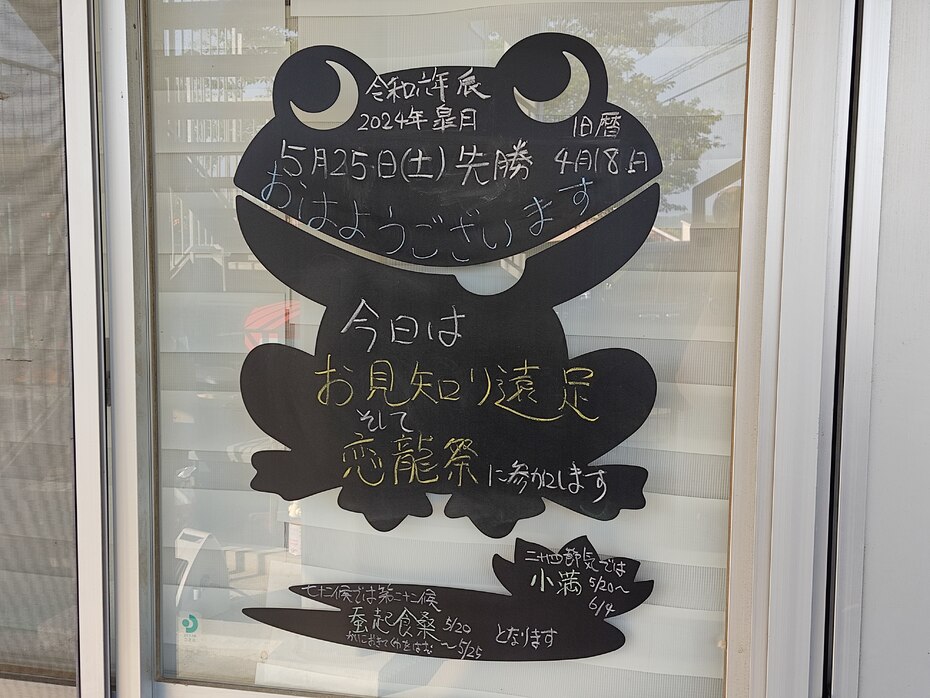 令和六年 辰
2024年 皐月
旧暦
5月25日(土) 先勝 4月18日
おはようございます
今日は
お見知り遠足
そして
恋龍祭に参加します
二十四節気では
小満 5/20～
6/4
七十二候では第二十二候
蚕起食桑 5/20
～5/25
かいこおきてくわをはむ
となります